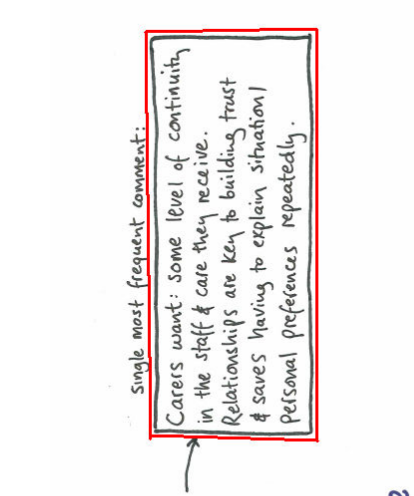 single most frequent comment:
Carers want: some level of continuity
in the staff & care they receive.
Relationships are key to building trust
& saves having to explain situation/
personal preferences repeatedly.
2